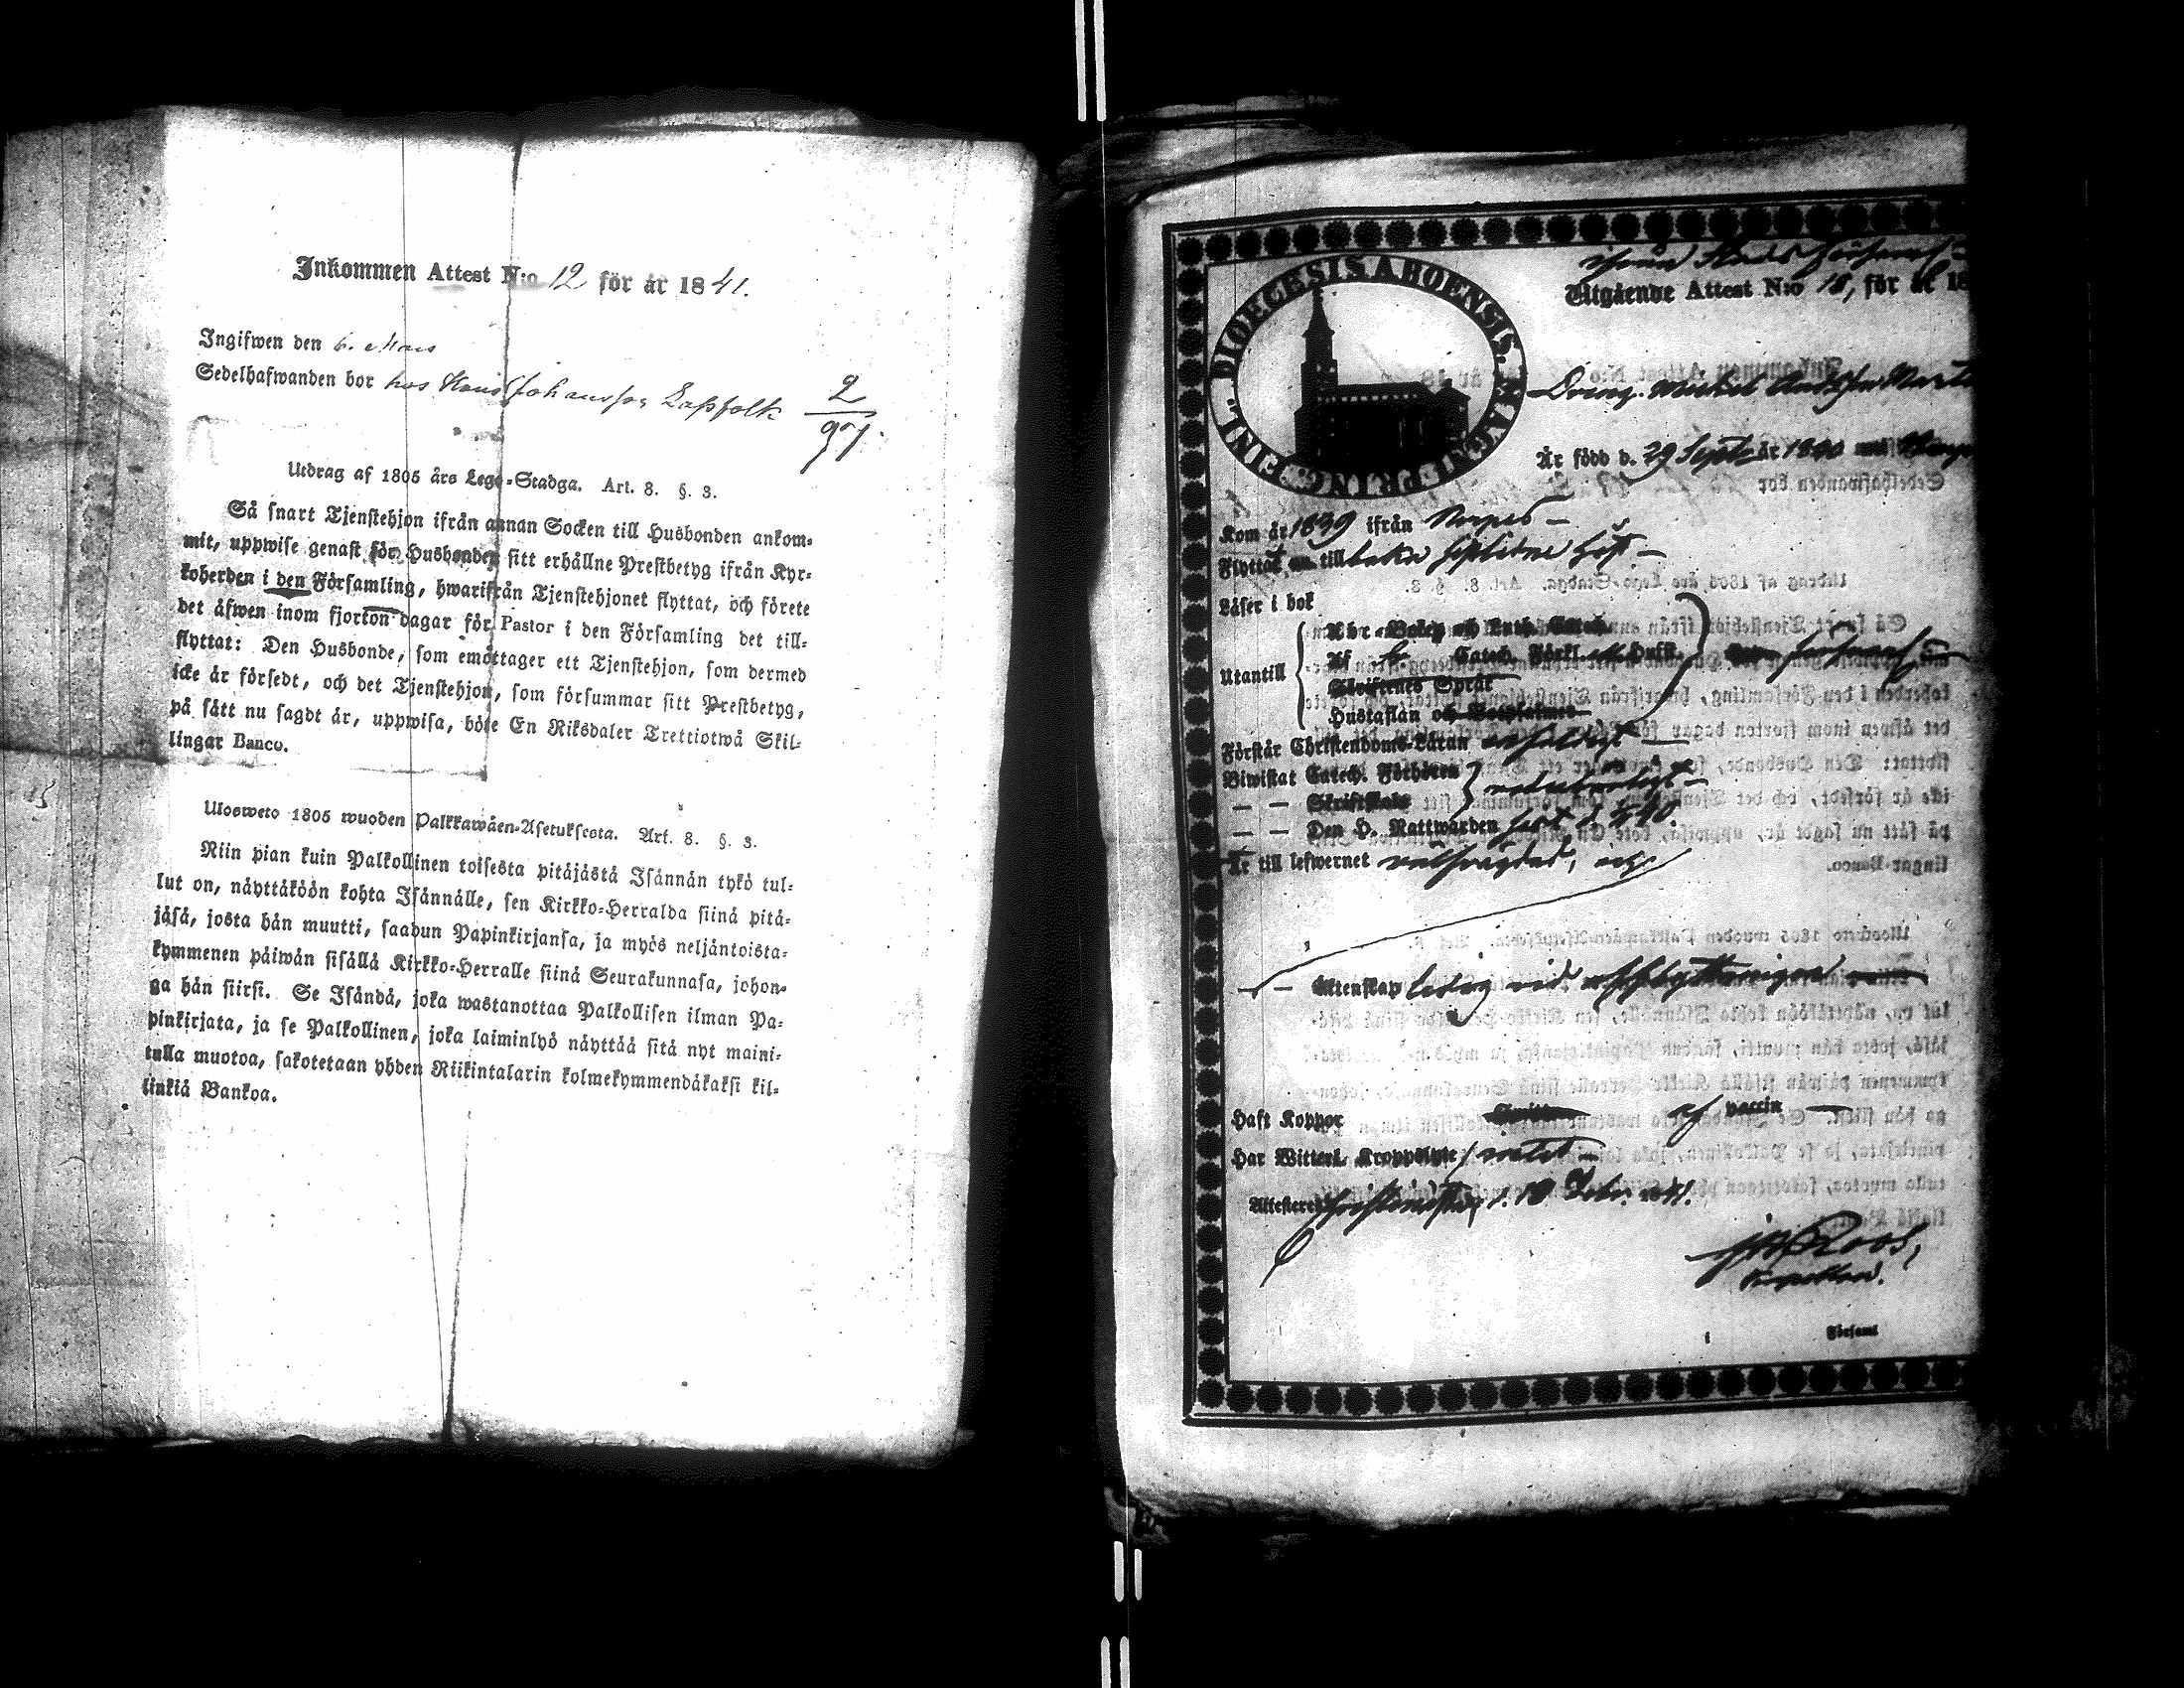 Inkommen Attest N:o 12 för år 1841.
Ingifwen den 6. Mars
Sedelhafwanden bor hos Hans Johansson Lappfolk
2
97.
Utdrag af 1805 års Lego-Stadga. Art. 8. §. 3.
Så snart Tjenstehjon ifrån annan Socken till Husbonden ankom-
mit, uppwise genast för Husbonden sitt erhållne Prestbetyg ifrån Kyr-
koherden i den Församling, hwarifrån Tjenstehjonet flyttat, och förete
det äfwen inom fjorton dagar för Pastor i den Församling det till-
flyttat: Den Husbonde, som emottager ett Tjenstehjon, som dermed
icke är försedt, och det Tjenstehjon, som försummar sitt Prestbetyg,
på sätt nu sagdt är, uppwisa, böte En Riksdaler Trettiotwå Skil-
lingar Banco.
Ulosweto 1805 wuoden Palkkawäen-Asetuksesta. Art. 8. §. 3.
Niin pian kuin Palkollinen toisesta pitäjästä Isännän tykö tul-
lut on, näyttäköön kohta Isännälle, sen Kirkko-Herralda siinä pitä-
jäsä, josta hän muutti, saadun Papinkirjansa, ja myös neljäntoista-
kymmenen päiwän sisällä Kirkko-Herralle siinä Seurakunnasa, johon-
ga hän siirsi. Se Isändä, joka wastanottaa Palkollisen ilman Pa-
pinkirjata, ja se Palkollinen, joka laiminlyö näyttää sitä nyt maini-
tulla muotoa, sakotetaan yhden Riikintalarin kolmekymmendäkaksi kil-
linkiä Bankoa.
DIOECESIS ABOENSIS. MAGNI PRINC. FENL.
Utgående Attest N:o 18, för år 18
Dreng. Michel
Är född d. 29 Sept. år 1820
Kom år 1839 ifrån Nerpes
Flyttat till
Läser i bok
Utantill
Abc-Boken och Luth. Catech.
Af Catech. Förkl. Husf.
Skriftenes Språk
Hustaflan och
Förstår Christendoms-Läran
Biwistat Catech. Förhören
— — Skriftskola
— — Den H. Nattwarden
Är till lefwernet välfrägdad, och
— — Äktenskap ledig vid afflyttningen
Haft Koppor vaccin
Har Witterl. Kroppslyte
Attesterar Christinestad d. 18 Febr. 1841.
Roos,
Församl